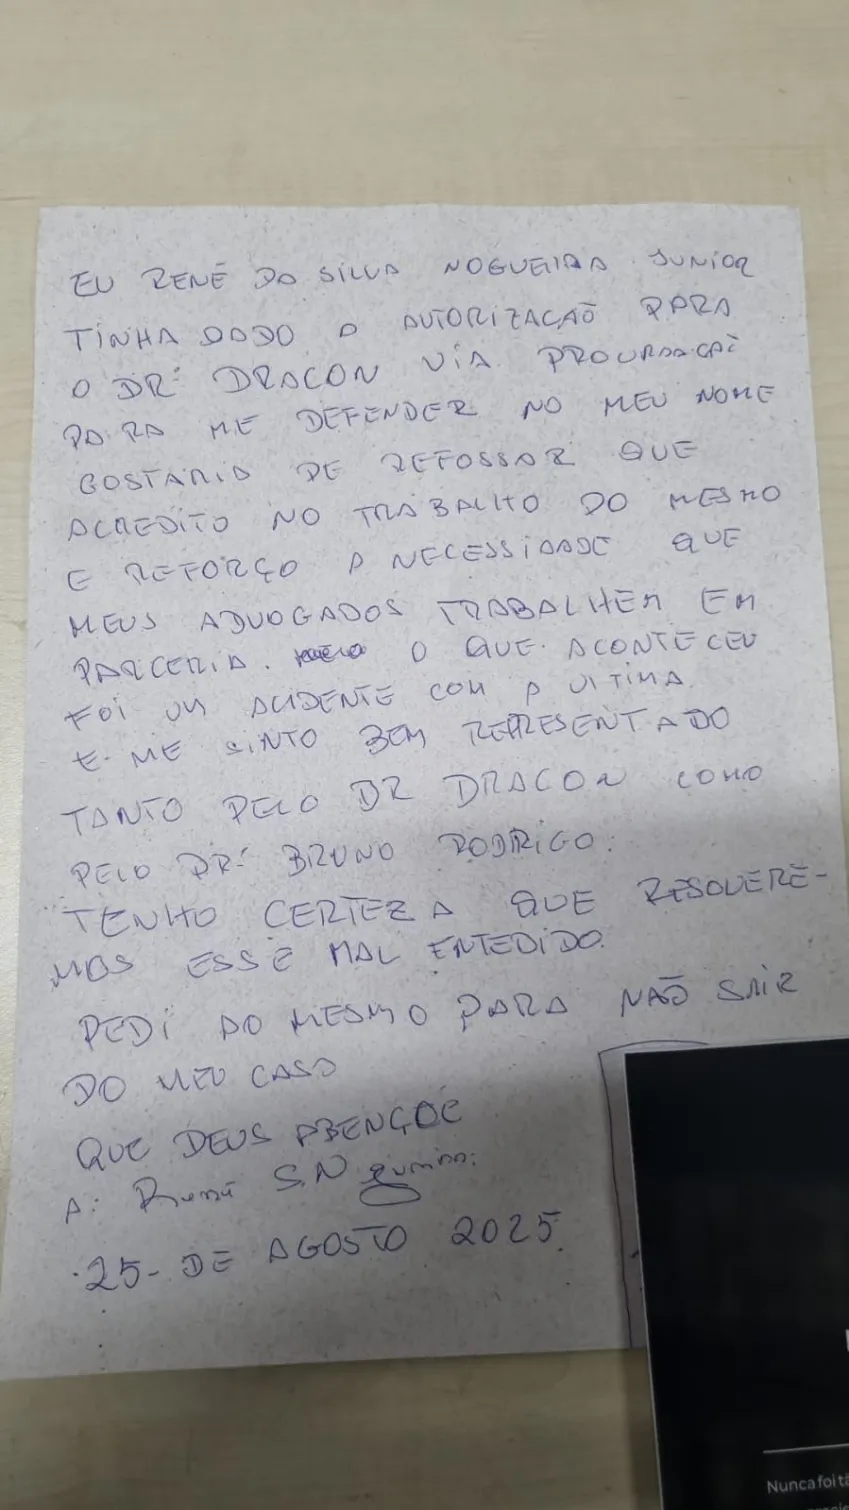 EU RENÉ DA SILVA NOGUEIRA JUNIOR
TINHA DADO A AUTORIZACAÕ PARA
O DR: DRACON VIA PROCURAACAÕ
PARA ME DEFENDER NO MEU NOME
GOSTARIA DE REFOSSAR QUE
ACREDITO NO TRABALHO DO MESMO
E REFORÇO A NECESSIDADE QUE
MEUS ADVOGADOS TRABALHEM EM
PARCERIA. O QUE ACONTECEU
FOI UM ACIDENTE COM A VITIMA
E ME SINTO BEM REPRESENTADO
TANTO PELO DR DRACON COMO
PELO DR: BRUNO RODRIGO.
TENHO CERTEZA QUE RESOVERÊ-
MOS ESSE MAL ENTEDIDO.
PEDI AO MESMO PARA NÃO SAIR
DO MEU CASO
QUE DEUS ABENÇOE
A: René S.N
25- DE AGOSTO 2025.
Nunca foi tã